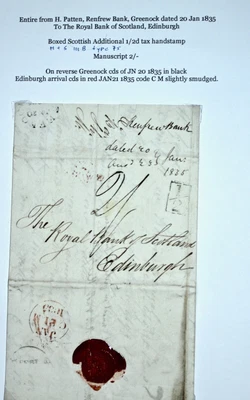 Entire from H. Patten, Renfrew Bank, Greenock dated 20 Jan 1835
To The Royal Bank of Scotland, Edinburgh
Boxed Scottish Additional 1/2d tax handstamp
Manuscript 2/-
On reverse Greenock cds of JN 20 1835 in black
Edinburgh arrival cds in red JAN21 1835 code C M slightly smudged.
Renfrew Bank
dated 20
Jan
1835
2/
The
Royal Bank of Scotland
Edinburgh